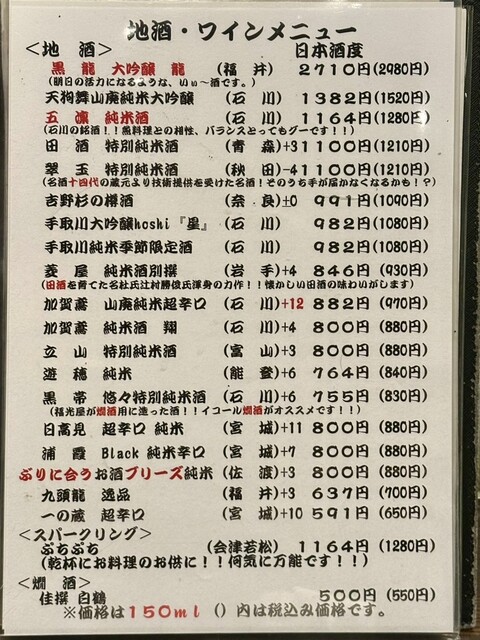 地酒・ワインメニュー
＜地 酒＞ 日本酒度
黒 龍 大吟醸 龍 (福 井) 2710円(2980円)
(明日の活力になるような、いぃ～酒です。)
天狗舞山廃純米大吟醸 (石 川) 1382円(1520円)
五 凛 純米酒 (石 川) 1164円(1280円)
(石川の銘酒！！魚料理との相性、バランスとってもグーです！！)
田 酒 特別純米酒 (青 森)+3 1100円(1210円)
翠 玉 特別純米酒 (秋 田)-4 1100円(1210円)
(名酒十四代の蔵元より技術提供を受けた名酒！そのうち手が届かなくなるかも！？)
吉野杉の樽酒 (奈 良)±0 991円(1090円)
手取川大吟醸hoshi『星』 (石 川) 982円(1080円)
手取川純米季節限定酒 (石 川) 982円(1080円)
菱 屋 純米酒別撰 (岩 手)+4 846円(930円)
(田酒を育てた名杜氏辻村勝俊氏渾身の力作！！懐かしい田酒の味わいがします)
加賀鳶 山廃純米超辛口 (石 川)+12 882円(970円)
加賀鳶 純米酒 翔 (石 川)+4 800円(880円)
立 山 特別純米酒 (富 山)+3 800円(880円)
遊 穂 純米 (能 登)+6 764円(840円)
黒 帯 悠々特別純米酒 (石 川)+6 755円(830円)
(福光屋が燗酒用に造った酒！！イコール燗酒がオススメです！！)
日高見 超辛口 純米 (宮 城)+11 800円(880円)
浦 霞 Black 純米辛口 (宮 城)+7 800円(880円)
ぶりに合うお酒ブリーズ純米 (佐 渡)+3 800円(880円)
九頭龍 逸品 (福 井)+3 637円(700円)
一の蔵 超辛口 (宮 城)+10 591円(650円)
＜スパークリング＞
ぷちぷち (会津若松) 1164円(1280円)
(乾杯にお料理のお供に！！何気に万能です！！)
＜燗 酒＞
佳撰 白鶴 500円(550円)
※価格は150ml ()内は税込み価格です。